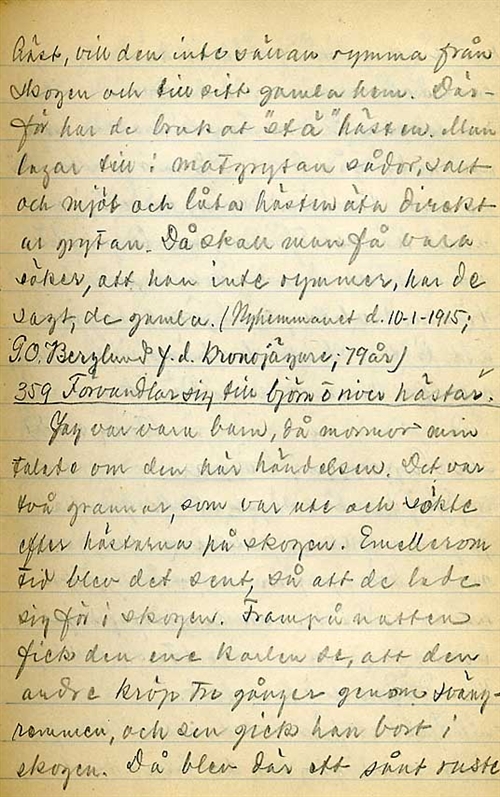 häst, vill den inte sällan rymma från
skogen och till sitt gamla hem. Där-
för har de brukat "stå" hästen. Man
lagar till i matgrytan sådor, salt
och mjöl och låta hästen äta direkt
ur grytan. Då skall man få vara
säker, att han inte rymmer, har de
sagt, de gamla. (Nyhemmanet d. 10-1-1915;
P.O. Berglund f.d. kronojägare; 79 år)
359 Förvandlar sig till björn o river hästar.
Jag var bara barn, då mormor min
talade om den här händelsen. Det var
två grannar, som var ute och sökte
efter hästarna på skogen. Emellerom
tid blev det sent, så att de lade
sig för i skogen. Frampå natten
fick den ene karlen se, att den
andre kröp tre gånger genom sväng-
remmen, och sen gick han bort i
skogen. Då blev där ett sånt